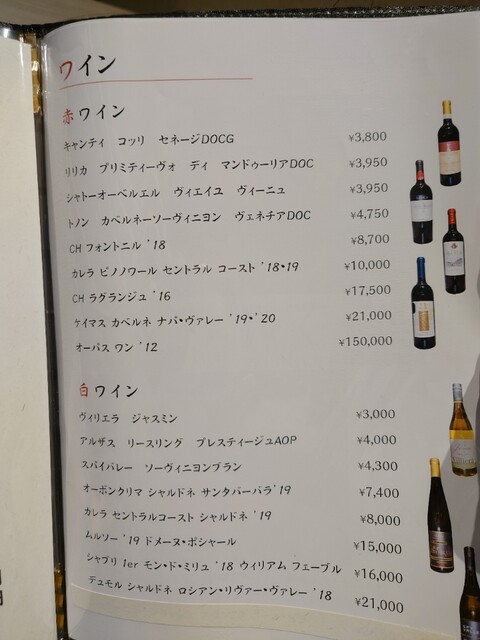 ワイン
赤ワイン
キャンティ コッリ セネージDOCG ¥3,800
リリカ プリミティーヴォ ディ マンドゥーリアDOC ¥3,950
シャトーオーベルエル ヴィエイユ ヴィーニュ ¥3,950
トノン カベルネーソーヴィニヨン ヴェネチアDOC ¥4,750
CH フォントニル '18 ¥8,700
カレラ ピノノワール セントラル コースト '18・19 ¥10,000
CH ラグランジュ '16 ¥17,500
ケイマス カベルネ ナパ・ヴァレー '19・'20 ¥21,000
オーパス ワン '12 ¥150,000
白ワイン
ヴィリエラ ジャスミン ¥3,000
アルザス リースリング プレスティージュAOP ¥4,000
スパイバレー ソーヴィニヨンブラン ¥4,300
オーボンクリマ シャルドネ サンタバーバラ'19 ¥7,400
カレラ セントラルコースト シャルドネ '19 ¥8,000
ムルソー '19 ドメーヌ・ポシャール ¥15,000
シャブリ 1er モン・ド・ミリュ '18 ウィリアム フェーブル ¥16,000
デュモル シャルドネ ロシアン・リヴァー・ヴァレー '18 ¥21,000